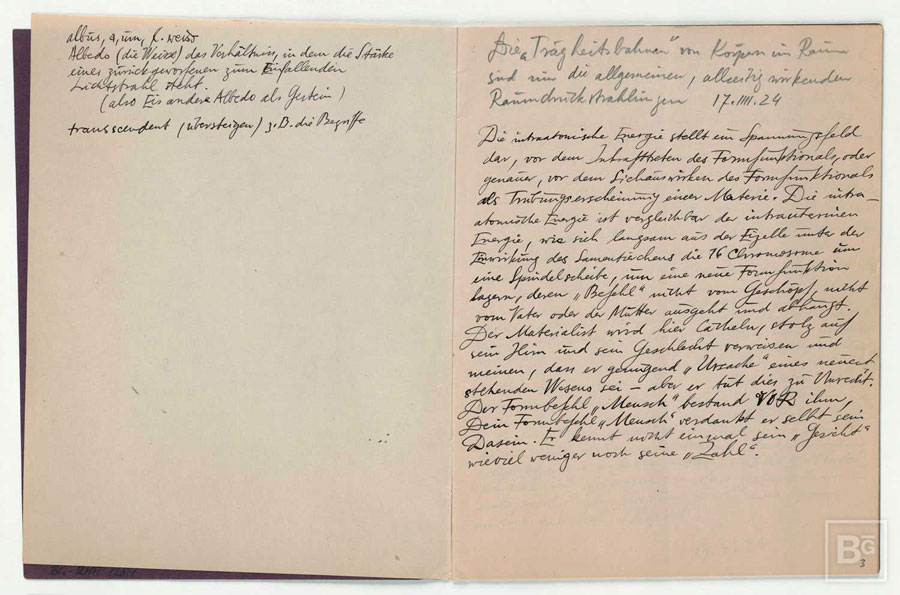 albus, a, um, l. weiss
Albedo (die Weisse) das Verhältnis, in dem die Stärke
eines zurückgeworfenen zum Einfallenden
Lichtstrahl steht.
(also Eis andere Albedo als Gestein)
transscendent (übersteigen) z.B. die Begriffe
Die „Trägheitsbahnen" von Körpern im Raum
sind nur die allgemeinen, allseitig wirkenden
Raumdruckstrahlungen 17.IIII.24
Die intraatomische Energie stellt ein Spannungsfeld
dar, vor dem Inkrafttreten des Formfunktionals, oder
genauer, vor dem Sichauswirken des Formfunktionals
als Trübungserscheinung einer Materie. Die intra-
atomische Energie ist vergleichbar der intrauterinen
Energie, wie sich langsam aus der Eizelle unter der
Einwirkung des Samentierchens die 16 Chromosome um
eine Spindelscheibe, um eine neue Formfunktion
lagern, deren „Befehl" nicht vom Geschöpf, nicht
vom Vater oder der Mutter ausgeht und abhängt.
Der Materialist wird hier lächeln, stolz auf
sein Hirn und sein Geschlecht verweisen und
meinen, dass er genügend „Ursache" eines neuent
stehenden Wesens sei – aber er tut dies zu Unrecht.
Der Formbefehl „Mensch" bestand VOR ihm,
Dem Formbefehl „Mensch" verdankt er selbst sein
Dasein. Er kennt nicht einmal sein „Gesicht"
wieviel weniger noch seine „Zahl".
BG
3